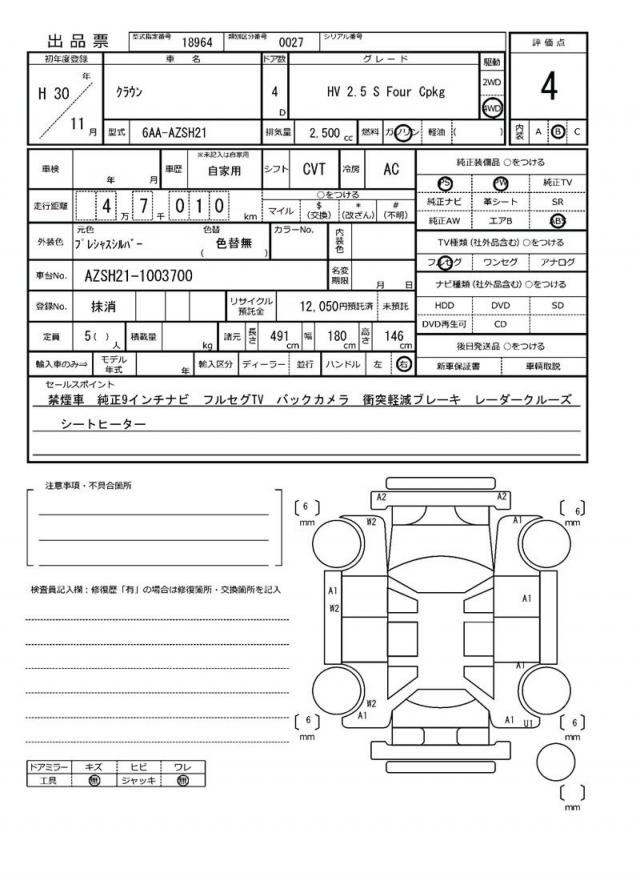 出品票 型式指定番号 18964 類別区分番号 0027 シリアル番号
評価点
4
初年度登録 車名 ドア数 グレード 駆動
H 30 年 11 月
クラウン 4 D HV 2.5 S Four Cpkg 2WD 4WD
型式 6AA-AZSH21 排気量 2,500 cc 燃料 ガソリン 軽油 ( ) 内装 A B C
車検 年 月 車歴 ※未記入は自家用 自家用 シフト CVT 冷房 AC
走行距離 4万7千010 km ○をつける マイル $(交換) *(改ざん) #(不明)
外装色 元色 プレシャスシルバー 色替 (色替無) カラーNo. 内装色
車台No. AZSH21-1003700 名変期限 月 日
登録No. 抹消 リサイクル預託金 12,050円預託済 未預託
定員 5( )人 積載量 kg 諸元 長さ 491 cm 幅 180 cm 高さ 146 cm
輸入車のみ⇒ モデル年式 年 輸入区分 ディーラー 並行 ハンドル 左 右
純正装備品 ○をつける
PS PW 純正TV
純正ナビ 革シート SR
純正AW エアB ABS
TV種類(社外品含む) ○をつける
フルセグ ワンセグ アナログ
ナビ種類(社外品含む) ○をつける
HDD DVD SD
DVD再生可 CD
後日発送品 ○をつける
新車保証書 車輌取説
セールスポイント
禁煙車 純正9インチナビ フルセグTV バックカメラ 衝突軽減ブレーキ レーダークルーズ
シートヒーター
注意事項・不具合箇所
検査員記入欄:修復歴「有」の場合は修復箇所・交換箇所を記入
ドアミラー キズ ヒビ ワレ
工具 無 ジャッキ 無
A2 A2
[ 6 ] mm W2 A1 [ 6 ] mm
A1 A1
W2
A1
W2
A1 A1 U1
[ 6 ] mm [ 6 ] mm
[ ] mm